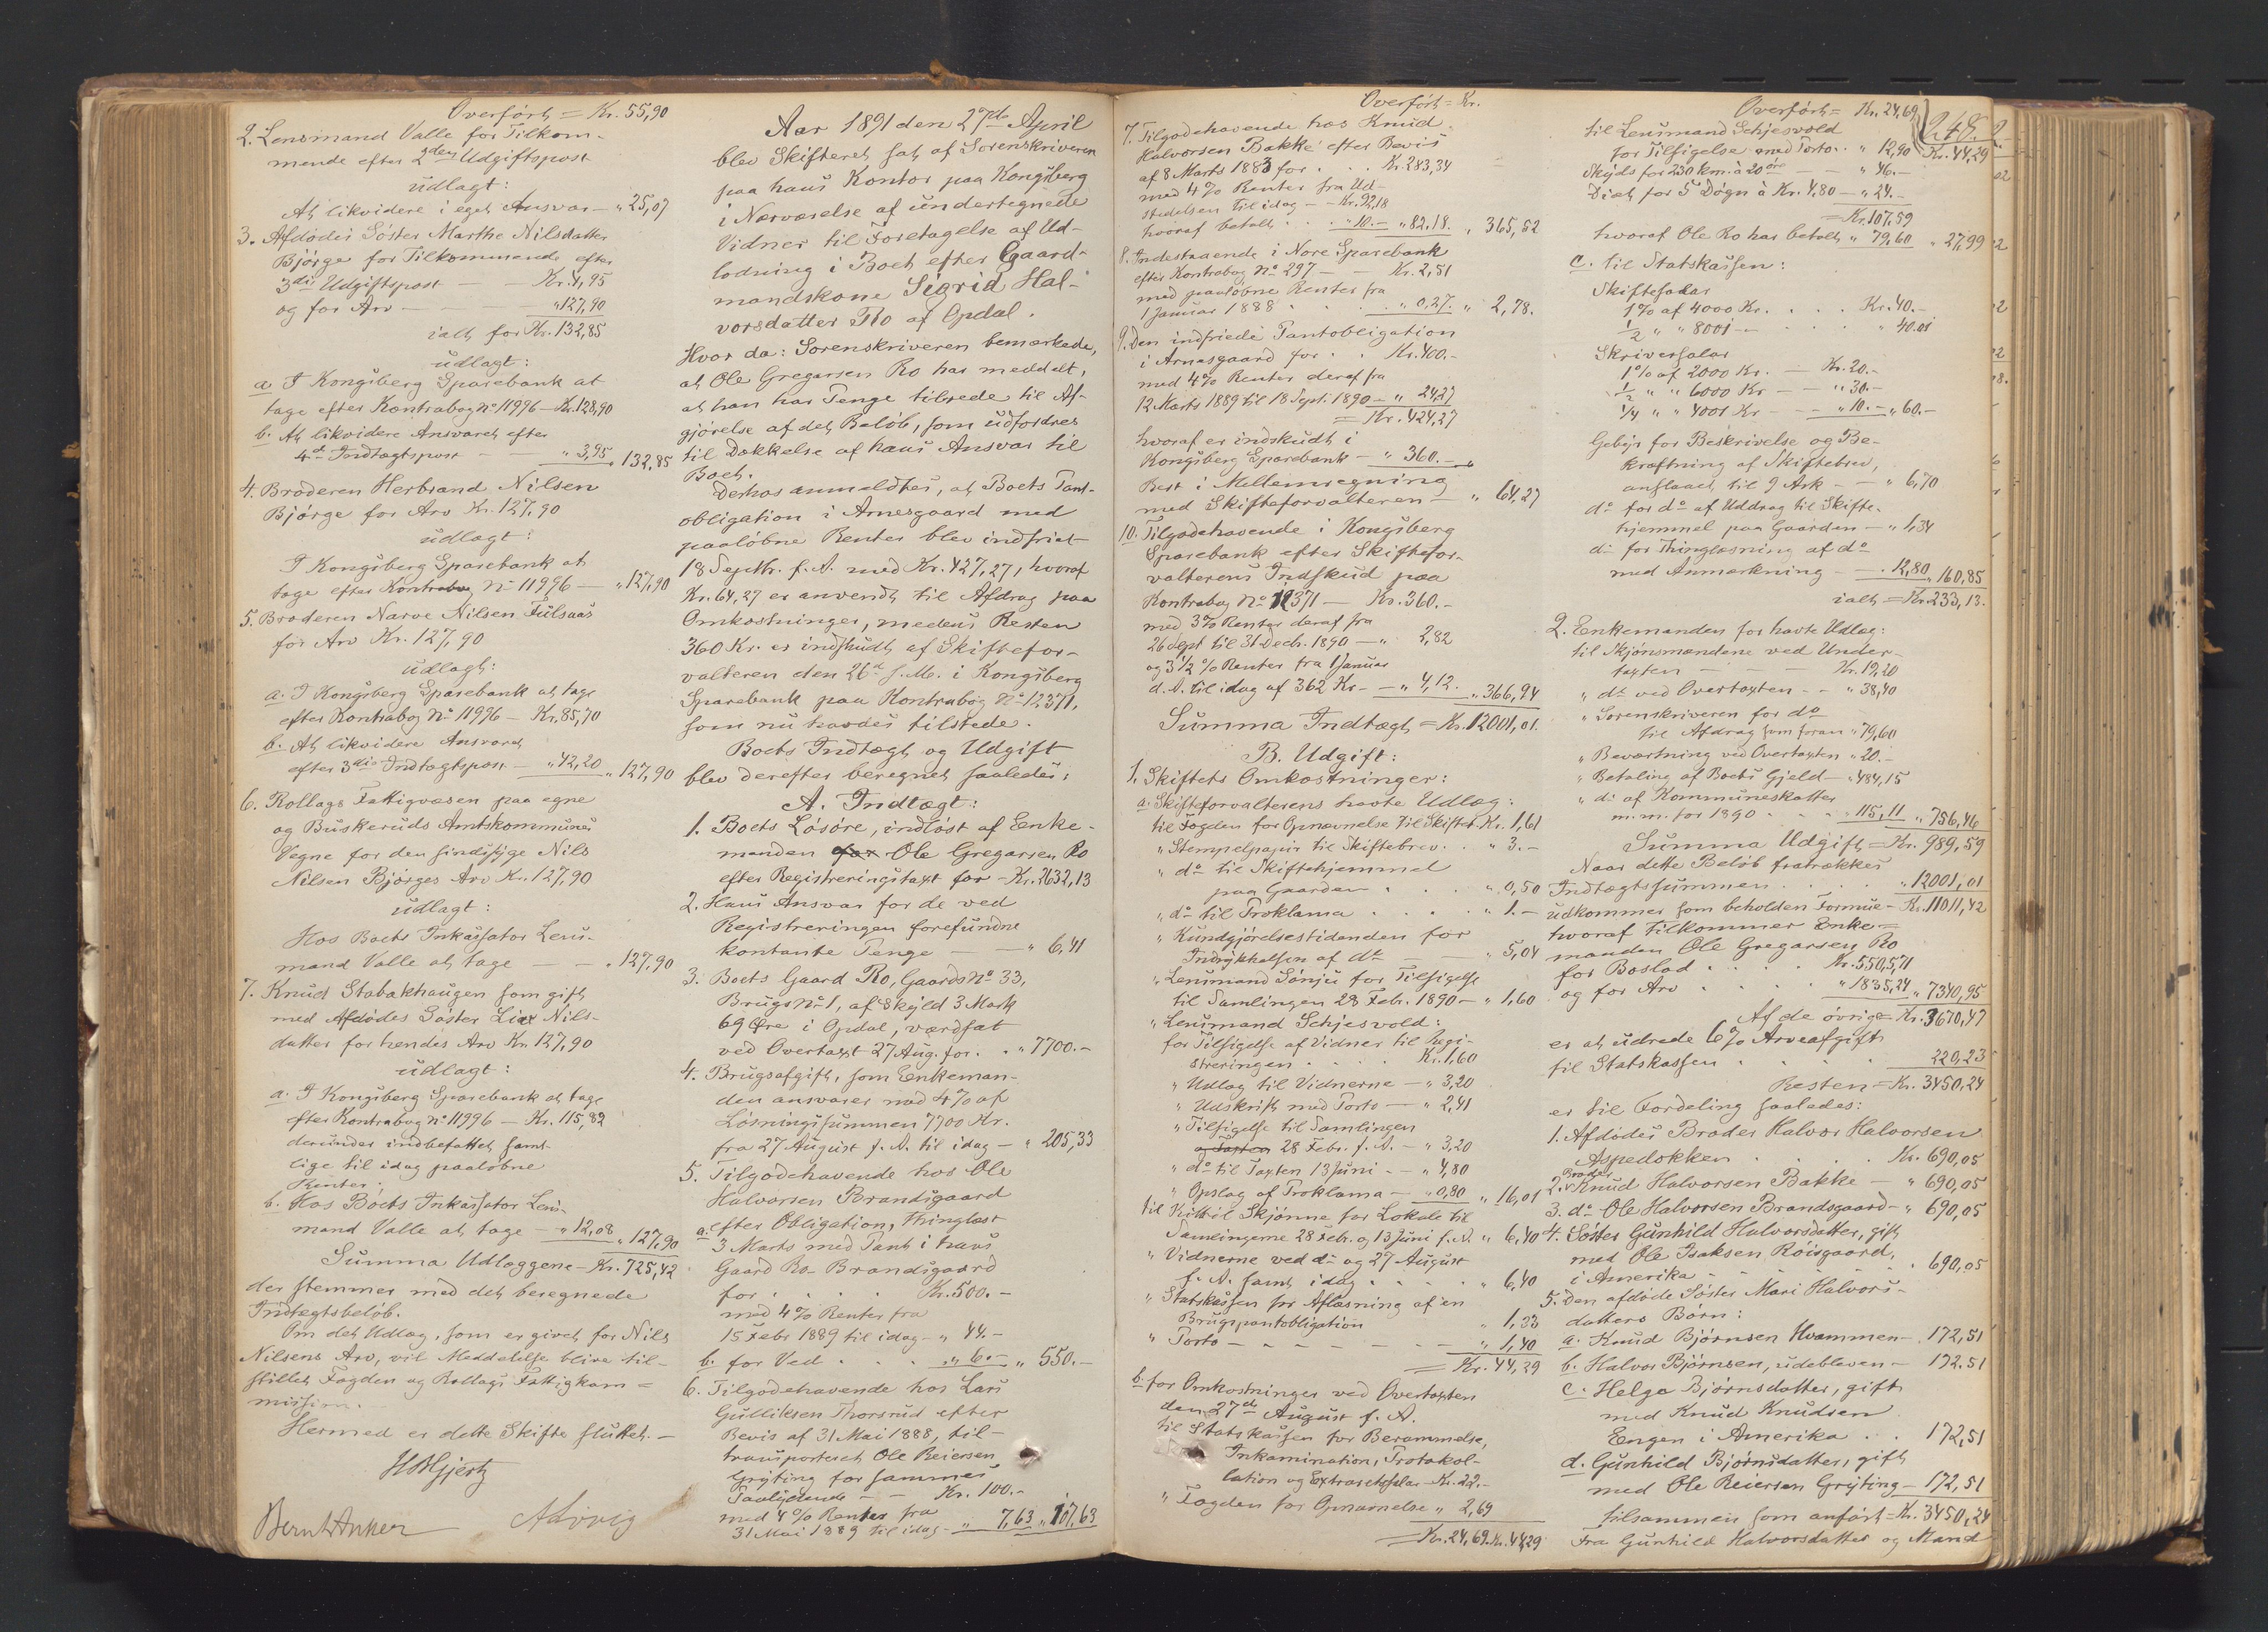 Overført = Kr. 55,90
2. Lensmand Valle for Tilkom-
mende efter 2den Udgiftspost
udlagt:
At likvidere i eget Ansvar — " 25,07
3. Afdødes Søster Marthe Nilsdatter
Bjørge for Tilkommende efter
3die Udgiftspost — — Kr. 4,95
og for Arv — — " 127,90
ialt for Kr. 132,85
udlagt:
a. I Kongsberg Sparebank at
tage efter Kontrabog No 11996 — Kr. 128,90
b. At likvidere Ansvaret efter
4de Indtægtspost — — " 3,95 " 132,85
4. Broderen Herbrand Nilsen
Bjørge for Arv Kr. 127,90
udlagt:
I Kongsberg Sparebank at
tage efter Kontrabog No 11996 — " 127,90
5. Broderen Narve Nilsen Fulsaas
for Arv Kr. 127,90
udlagt:
a. I Kongsberg Sparebank at tage
efter Kontrabog No 11996 — Kr. 85,70
b. At likvidere Ansvaret
efter 3die Indtægtspost — " 42,20 " 127,90
6. Rollags Fattigvæsen paa egne
og Buskeruds Amtskommunes
Vegne for den sindssyge Nils
Nilsen Bjørges Arv Kr. 127,90
udlagt:
Hos Boets Inkassator Lens-
mand Valle at tage — — " 127,90
7. Knud Stabakhaugen som gift
med Afdødes Søster Live Nils-
datter for hendes Arv Kr. 127,90
udlagt:
a. I Kongsberg Sparebank at tage
efter Kontrabog No 11996 — Kr. 115,82
derunder indbefattet samt-
lige til idag paaløbne
Renter.
b. Hos Boets Inkassator Lens-
mand Valle at tage — " 12,08 " 127,90
Summa Udlæggene — Kr. 725,42
der stemmer med det beregnede
Indtægtsbeløb.
Om det Udlæg, som er givet for Nils
Nilsens Arv, vil Meddelelse blive til-
stillet Fogden og Rollags Fattigkom-
mission.
Hermed er dette Skifte sluttet. —
Bernt Anker
Aar 1891 den 27de April
blev Skifteret sat af Sorenskriveren
paa hans Kontor paa Kongsberg
i Nærværelse af undertegnede
Vidner til Foretagelse af Ud-
lodning i Boet efter Gaard-
mandskone Sigrid Hal-
vorsdatter Ro af Opdal.
Hvor da: Sorenskriveren bemærkede,
at Ole Gregarsen Ro har meddelt,
at han har Penge tilrede til Af-
gjørelse af det Beløb, som udfordres
til Dækkelse af hans Ansvar til
Boet.
Derhos anmeldtes, at Boets Pant-
obligation i Arnesgaard med
paaløbne Renter blev indfriet
18 Septbr. f. A. med Kr. 427,27, hvoraf
Kr. 64,27 er anvendt til Afdrag paa
Omkostninger, medens Resten
360 Kr. er indskudt af Skiftefor-
valteren den 26de s. M. i Kongsberg
Sparebank paa Kontrabog No 12371,
som nu havdes tilstede.
Boets Indtægt og Udgift
blev derefter beregnet saaledes:
A. Indtægt:
1. Boets Løsøre, indløst af Enke-
manden for Ole Gregarsen Ro
efter Registreringstaxt for — Kr. 2632,13
2. Hans Ansvar for de ved
Registreringen forefundne
kontante Penge — — " 6,41
3. Boets Gaard Ro, Gaards No 33,
Brugs No 1, af Skyld 3 Mark
69 Øre i Opdal, værdsat
ved Overtaxt 27 Aug. for . . " 7700.—
4. Brugsafgift, som Enkeman-
den ansvarer med 4% af
Løsningssummen 7700 Kr.
fra 27 August f. A. til idag — " 205,33
5. Tilgodehavende hos Ole
Halvorsen Brandsgaard
a. efter Obligation, thinglæst
3 Marts med Pant i hans
Gaard Ro-Brandsgaard
for . . . . Kr. 500.—
med 4% Renter fra
15 Febr 1889 til idag — " 44.—
b. for Ved . . . " 6.— " 550.—
6. Tilgodehavende hos Lars
Gulliksen Thorsrud efter
Bevis af 31 Mai 1888, til-
transporteret Ole Reiersen
Grøting for sammes
Paalydende — — Kr. 100.—
med 4% Renter fra
31 Mai 1889 til idag — " 7,63 " 107,63
Overført = Kr.
7. Tilgodehavende hos Knud
Halvorsen Bakke efter Bevis
af 8 Marts 1883 for . . . Kr. 283,34
med 4% Renter fra Ud-
stedelsen til idag — Kr. 92,18
hvoraf betalt . . . " 10.— " 82.18. " 365,52
8. Indestaaende i Nore Sparebank
efter Kontrabog No 297 — — Kr. 2,51
med paaløbne Renter fra
1 Januar 1888 . . . " 0,27. " 2,78.
9. Den indfriede Pantobligation
i Arnesgaard for . . Kr. 400.—
med 4% Renter deraf fra
12 Marts 1889 til 18 Sept. 1890 — " 24,27
= Kr. 424,27
hvoraf er indskudt i
Kongsberg Sparebank — " 360.—
Rest i Mellemregning
med Skifteforvalteren — " 64,27
10. Tilgodehavende i Kongsberg
Sparebank efter Skiftefor-
valterens Indskud paa
Kontrabog No 12371 — Kr. 360.—
med 3% Renter deraf fra
26 Sept til 31 Decb. 1890 — " 2,82
og 3½% Renter fra 1 Januar
d. A. til idag af 362 Kr. — " 4,12. " 366,94
Summa Indtægt = Kr. 12001,01.
B. Udgift:
1. Skiftets Omkostninger:
a. Skifteforvalterens havte Udlæg:
til Fogden for Opnævnelse til Skiftet Kr. 1,61
" Stempelpapir til Skiftebrev . . " 3.—
" do til Skiftehjemmel
paa Gaarden . . . " 0,50
" do til Proklama . . . . " 1.—
" Kundgjørelsestidenden for
Indrykkelsen af do — — " 5,04
" Lensmand Sønju for Tilsigelse
til Samlingen 28 Febr. 1890 — " 1,60
" Lensmand Schjesvold:
for Tilsigelse af Vidner til Regi-
streringen . . . . Kr. 1,60
" Udlæg til Vidnerne — " 3,20
" Udskrift med Porto — " 2,41
" Tilsigelse til Samlingen
og Taxten 28 Febr. f. A. — " 3,20
" do til Taxten 13 Juni . — " 4,80
" Opslag af Proklama — " 0,80 " 16,01
til Kittil Skjønne for Lokale til
Samlingerne 28 Febr. og 13 Juni f. A. " 6,40
" Vidnerne ved do og 27 August
f. A. samt idag . . . . " 6,40
" Statskassen for Aflæsning af en
Brugspantobligation " 1,33
" Porto — — — — — " 1,40
= Kr. 44,29
b. for Omkostninger ved Overtaxten
den 27de August f. A.
til Statskassen for Berammelse,
Inkamination, Protokol-
lation og Extraretsgebyr — Kr. 22.—
" Fogden for Opnævnelse " 2,69
= Kr. 24,69. Kr. 44,29
248.
Overført = Kr. 24,69 Kr. 44,29
til Lensmand Schjesvold
for Tilsigelse med Porto . . " 12,90
Skyds for 230 km. à 20 øre — — " 46.—
Diæt for 5 Døgn à Kr. 4,80 — " 24.—
= Kr. 107,59
hvoraf Ole Ro har betalt " 79,60 " 27,99
c. til Statskassen:
Skiftesalær
1% af 4000 Kr. . . . Kr. 40.—
½ " " 8001 — . . . " 40.01
Skriversalær
1% af 2000 Kr. — Kr. 20.—
½ " " 6000 Kr — — " 30.—
¼ " " 4001 Kr — — " 10.— " 60.—
Gebyr for Beskrivelse og Be-
kræftning af Skiftebrev,
anslaaet til 9 Ark — — " 6,70
do for do af Uddrag til Skifte-
hjemmel paa Gaarden — " 1,34
do for Thinglæsning af do
med Anmærkning — — " 12,80 " 160,85
ialt = Kr. 233,13.
2. Enkemanden for havte Udlæg:
til Skjønsmændene ved Under-
taxten — — — Kr. 19,20
" do ved Overtaxten — — " 38,40
" Sorenskriveren for do
til Afdrag som foran " 79,60
" Beværtning ved Overtaxten " 20.—
" Betaling af Boets Gjeld — " 484,15
" do af Kommuneskatter
m. m. for 1890 . . . " 115,11 " 756,46
Summa Udgift = Kr. 989,59
Naar dette Beløb fratrækkes
Indtægtssummen . . . . " 12001,01
udkommer som beholden Formue — Kr. 11011,42
hvoraf tilkommer Enke-
manden Ole Gregarsen Ro
for Boslod . . . . Kr. 5505,71
og for Arv . . . . " 1835,24 " 7340,95
Af de øvrige = Kr. 3670,47
er at udrede 6% Arveafgift
til Statskassen . . . . 220,23
Resten = Kr. 3450,24
er til Fordeling saaledes:
1. Afdødes Broder Halvor Halvorsen
Aspedokken . . . . Kr. 690,05
2. Broder Knud Halvorsen Bakke — " 690,05
3. do Ole Halvorsen Brandsgaard — " 690,05
4. Søster Gunhild Halvorsdatter, gift
med Ole Isaksen Röisgaard,
i Amerika — . . . . . " 690,05
5. Den afdøde Søster Mari Halvors-
datters Børn:
a. Knud Bjørnsen Hvammen — 172,51
b. Halvor Bjørnsen, udebleven — 172.51
c. Helge Bjørnsdatter, gift
med Knud Knudsen
Engen i Amerika . . 172,51
d. Gunhild Bjørnsdatter, gift
med Ole Reiersen Grøting — 172,51
tilsammen som anført = Kr. 3450,24
Fra Gunhild Halvorsdatter og Mand